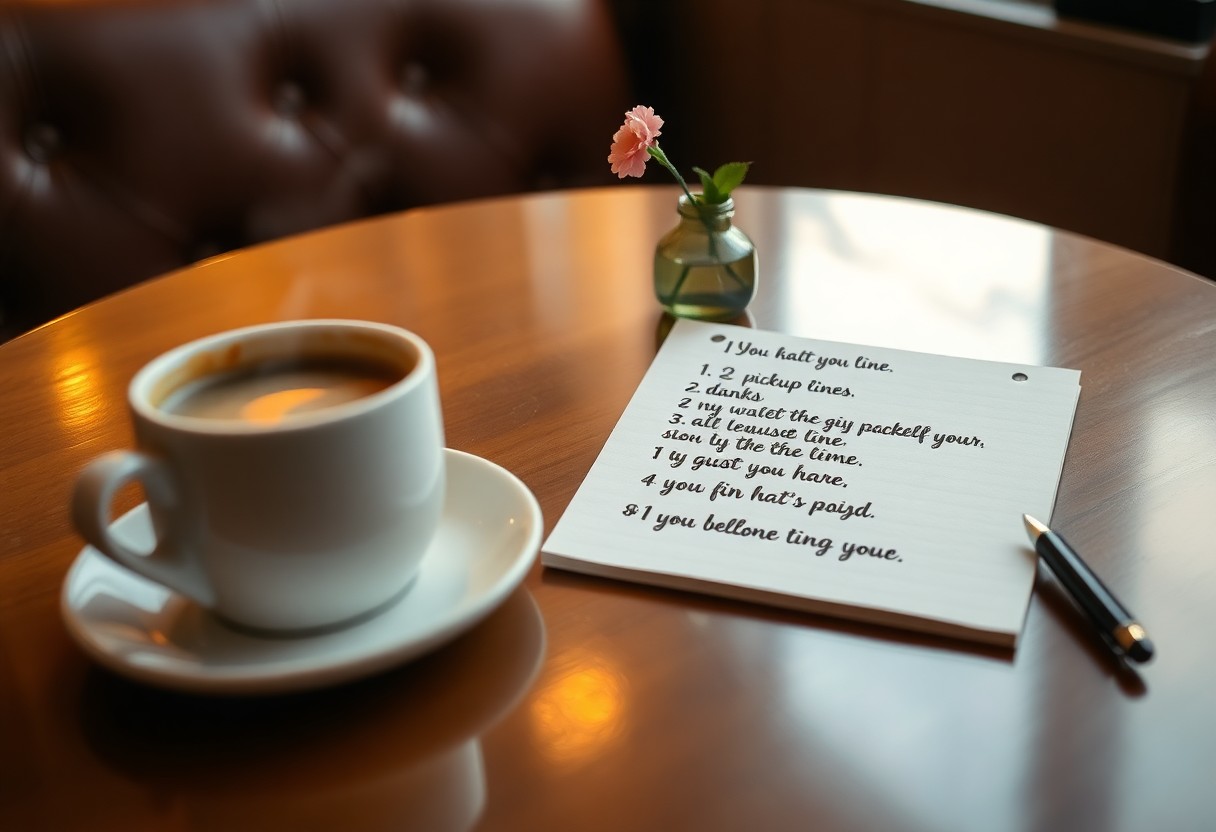 1 You katt you line.
1. 2 pickup lines.
2. danks
2 ny walet the giy packelf your,
3. all leruisct line,
slon ly the the lime.
1 ly gust you hare,
4 you fin hat's paijd.
$1 you bellone ting youe.